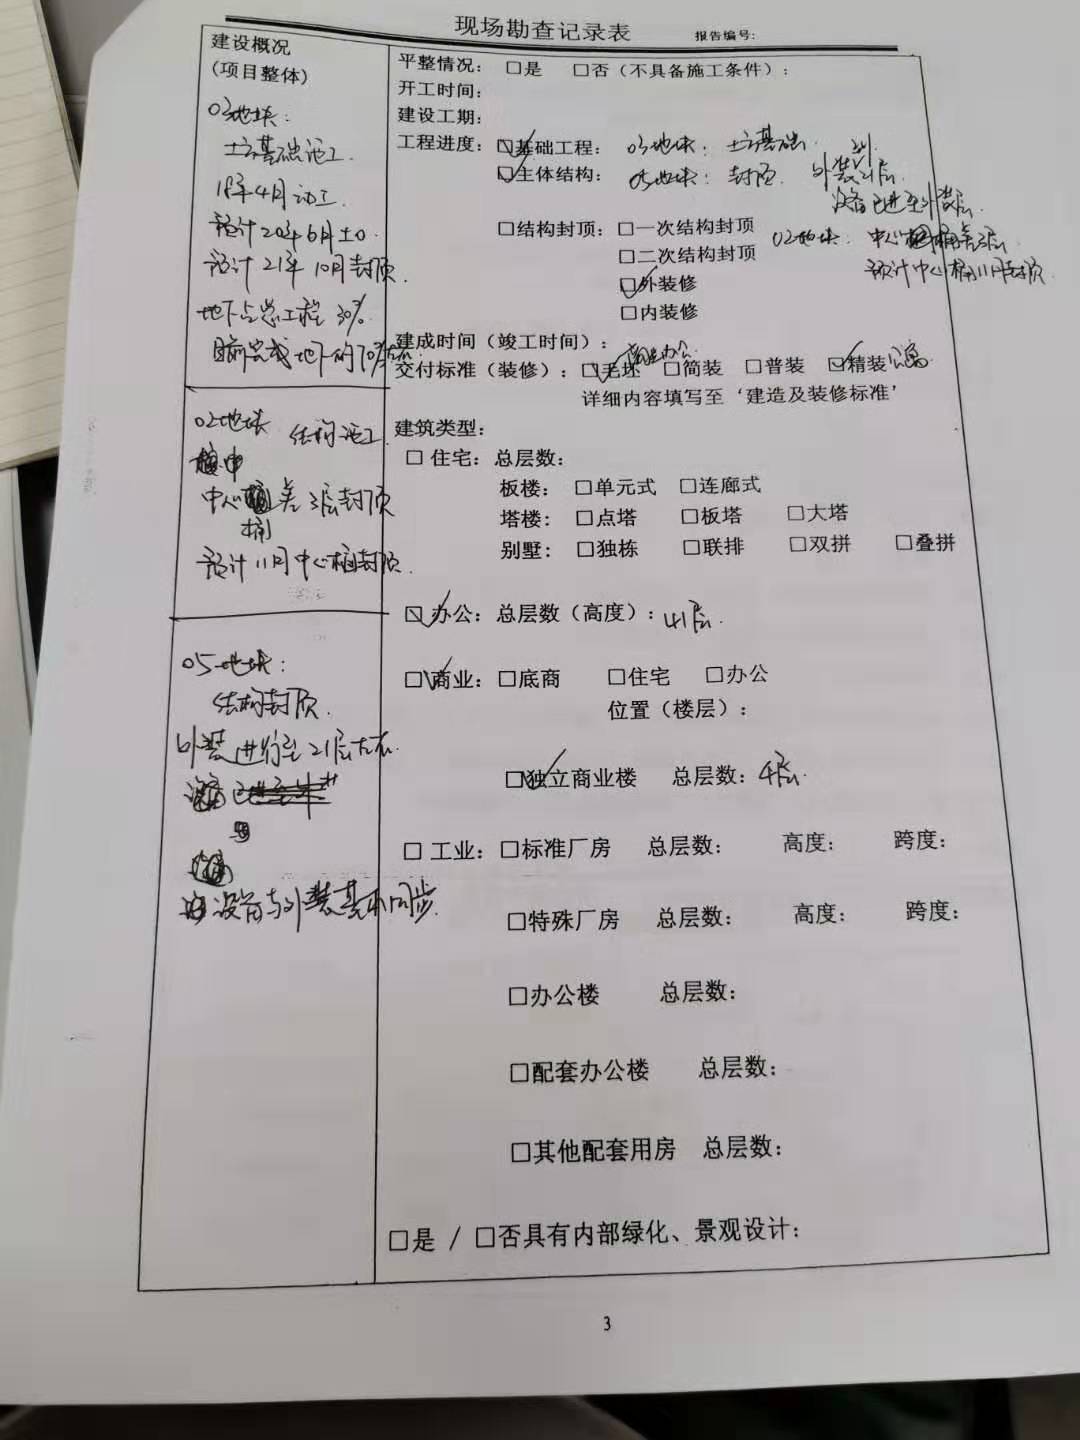 现场勘查记录表 报告编号:
建设概况
(项目整体)
03地块:
土方基础施工.
18年4月动工.
预计20年6月土0
预计21年10月封顶.
地下占总工程30%.
目前完成地下的70%左右.
02地块 结构施工
中心 差3层封顶
桶
预计11月中心桶封顶.
05地块:
结构封顶.
外装进行至21层左右.
设备与外装基本同步.
平整情况: □是 □否(不具备施工条件):
开工时间:
建设工期:
工程进度: ☑基础工程: 03地块: 土方基础.
☑主体结构: 05地块: 封顶. 外装21层.
设备已进至外装层.
□结构封顶: □一次结构封顶 02地块: 中心桶差3层
□二次结构封顶 预计中心桶11月封顶
☑外装修
□内装修
建成时间(竣工时间):
交付标准(装修): ☑毛坯 商业办公 □简装 □普装 ☑精装 公寓
详细内容填写至‘建造及装修标准’
建筑类型:
□ 住宅: 总层数:
板楼: □单元式 □连廊式
塔楼: □点塔 □板塔 □大塔
别墅: □独栋 □联排 □双拼 □叠拼
☑ 办公: 总层数(高度): 41层.
☑商业: □底商 □住宅 □办公
位置(楼层):
☑独立商业楼 总层数: 4层.
□ 工业: □标准厂房 总层数: 高度: 跨度:
□特殊厂房 总层数: 高度: 跨度:
□办公楼 总层数:
□配套办公楼 总层数:
□其他配套用房 总层数:
□是 / □否具有内部绿化、景观设计:
3